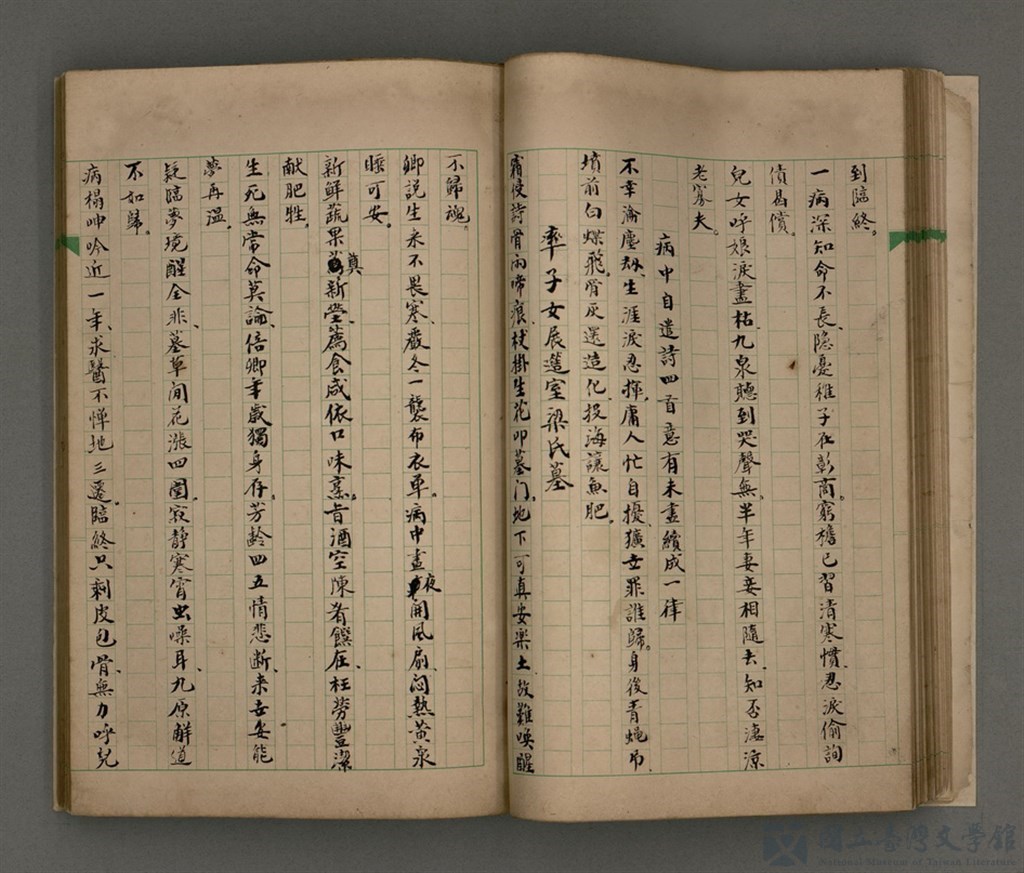 到臨終。
一病深知命不長、隐憂稚子在彰商。窮檐已習清寒慣、忍淚偷詢
債曷償。
兒女呼娘淚盡枯、九泉聽到哭聲無。半年妻妾相隨去、知否淒涼
老寡夫。
病中自遣詩四首意有未盡續成一律
不幸淪塵劫、生涯淚忍揮。庸人忙自擾、獷女罪誰歸。身後青蝇吊、
墳前白蝶飛。骨灰還造化、投海讓魚肥。
率子女展簉室梁氏墓
霜侵詩骨雨啼痕、杖掛生花叩墓门。地下可真安樂土、故難喚醒
不歸魂。
卿説生来不畏寒、嚴冬一襲布衣单。病中晝夜開風扇、闷熱黄泉
睡可安。
新鮮蔬果真新瑩、薦食咸依口味烹。旨酒空陳肴饌在、枉勞豐潔
献肥牲。
生死無常命莫論、倍卿年歲獨身存。芳齡四五情悲断、来世安能
夢再温。
疑臨夢境醒全非、墓草间花漲四圍。寂静寒宵虫噪耳、九原鮮道
不如歸。
病榻呻吟近一年、求醫不惮地三遷。臨終只剩皮包骨、無力呼兒
國立臺灣文學館
National Museum of Taiwan Literature